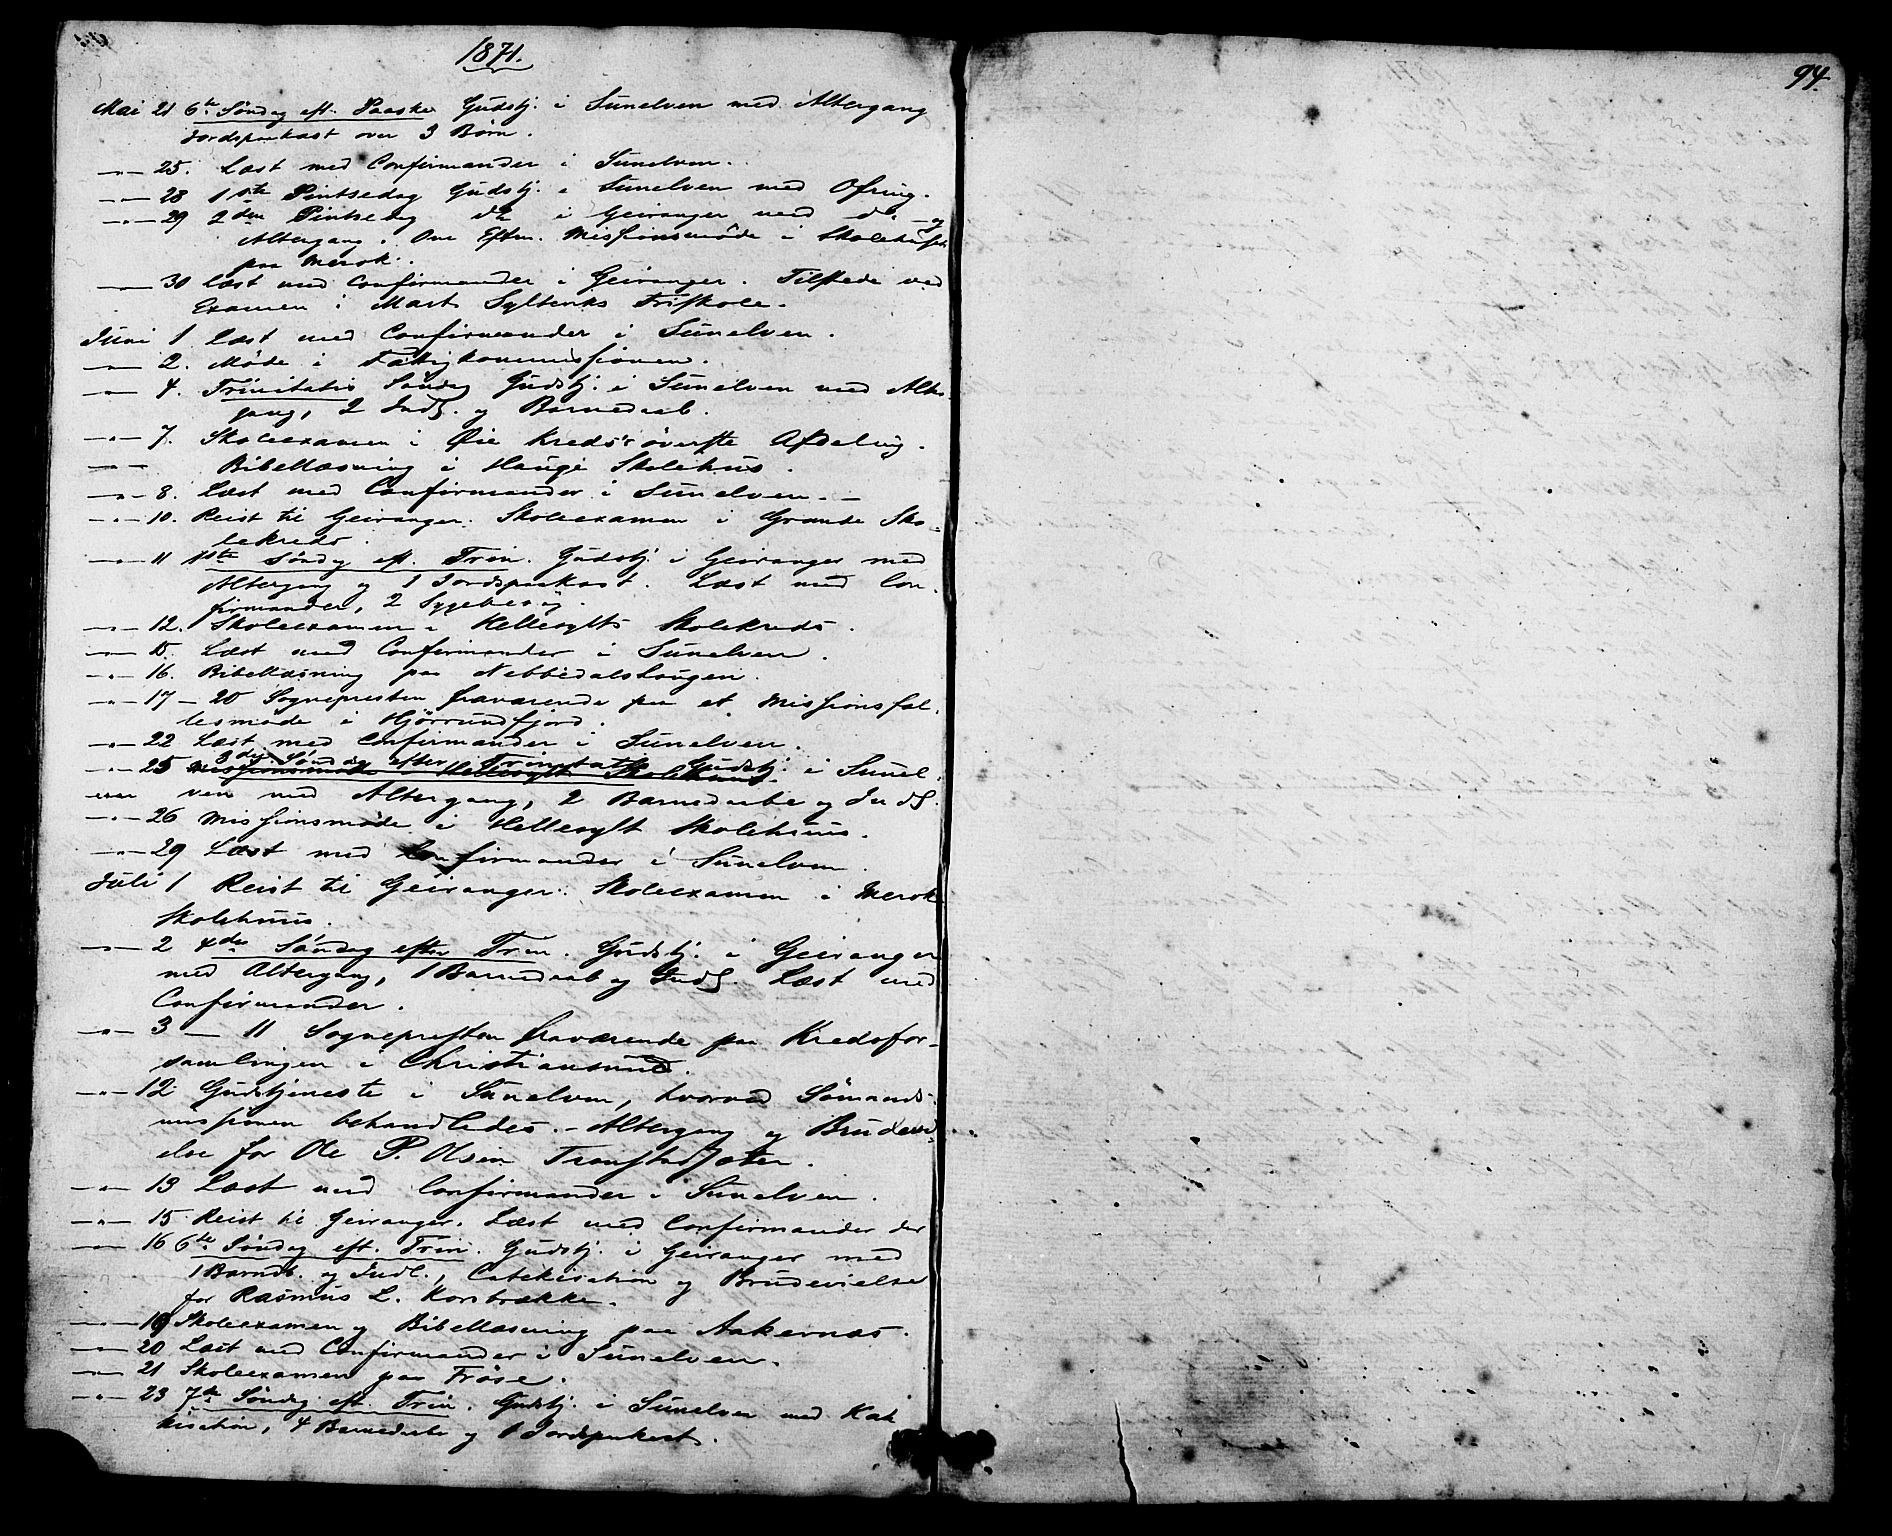 1871.
94.
Mai 21 6te Søndag eft. Paaske Gudstj. i Sunelven med Altergang
Jordspaakast over 3 Børn.
—"— 25. Læst med Confirmander i Sunelven.
—"— 28 1ste Pintsedag Gudstj. i Sunelven med Ofring.
—"— 29 2den Pintsedag do i Geiranger med do og
Altergang. Om Eftm. Missionsmøde i Skolehuset
paa Merok.
—"— 30 Læst med Confirmander i Geiranger. Tilstede ved
Examen i Mart Sylteviks Friskole.
Juni 1 Læst med Confirmander i Sunelven.
—"— 2. Møde i Fattigkommissionen.
—"— 4. Trinitatis Søndag Gudstj. i Sunelven med Alter-
gang, 2 Indl. og Barnedaab.
—"— 7. Skoleexamen i Øie Kreds's øverste Afdeling.
—"— Bibellæsning i Hauge Skolehus.
—"— 8. Læst med Confirmander i Sunelven. —
—"— 10. Reist til Geiranger. Skoleexamen i Grande Sko-
lekreds.
—"— 11 1ste Søndag eft. Trin. Gudstj. i Geiranger med
Altergang og 1 Jordspaakast. Læst med Con-
firmander, 2 Sygebesøg.
—"— 12. Skoleexamen i Hellesylts Skolekreds.
—"— 15. Læst med Confirmander i Sunelven.
—"— 16. Bibellæsning paa Nebbedalshougen.
—"— 17 – 20 Sognepresten fraværende paa et Missionsfæl-
lesmøde i Hjørrundfjord.
—"— 22 Læst med Confirmander i Sunelven.
—"— 25 3die Søndag efter Trinitatis Gudstj. i Sunel-
Missionsmøde i Hellesylt Skolehuus.
ven med Altergang, 2 Barnedaabe og Indl.
—"— 26 Missionsmøde i Hellesylt Skolehuus.
—"— 29 Læst med Confirmander i Sunelven.
Juli 1 Reist til Geiranger. Skoleexamen i Merok
Skolehuus.
—"— 2 4de Søndag efter Trin. Gudstj. i Geiranger
med Altergang, 1 Barnedaab og Indl. Læst med
Confirmander.
—"— 3 — 11 Sognepresten fraværende paa Kredsfor-
samlingen i Christiansund.
—"— 12 Gudstjeneste i Sunelven, hvorved Sømands-
missionen behandledes. – Altergang og Brudevi-
else for Ole P. Olsen Tronstadsæter.
—"— 13 Læst med Confirmander i Sunelven.
—"— 15 Reist til Geiranger. Læst med Confirmander der
—"— 16 6te Søndag eft. Trin. Gudstj. i Geiranger med
1 Barndb. og Indl., Catekisation og Brudevielse
for Rasmus L. Korsbrække.
—"— 19 Skoleexamen og Bibellæsning paa Aakernæs.
—"— 20 Læst med Confirmander i Sunelven.
—"— 21 Skoleexamen paa Frøse.
—"— 23 7de Søndag eft. Trin. Gudstj. i Sunelven med Kate
kisation, 4 Barnedaabe og 1 Jordspaakast.